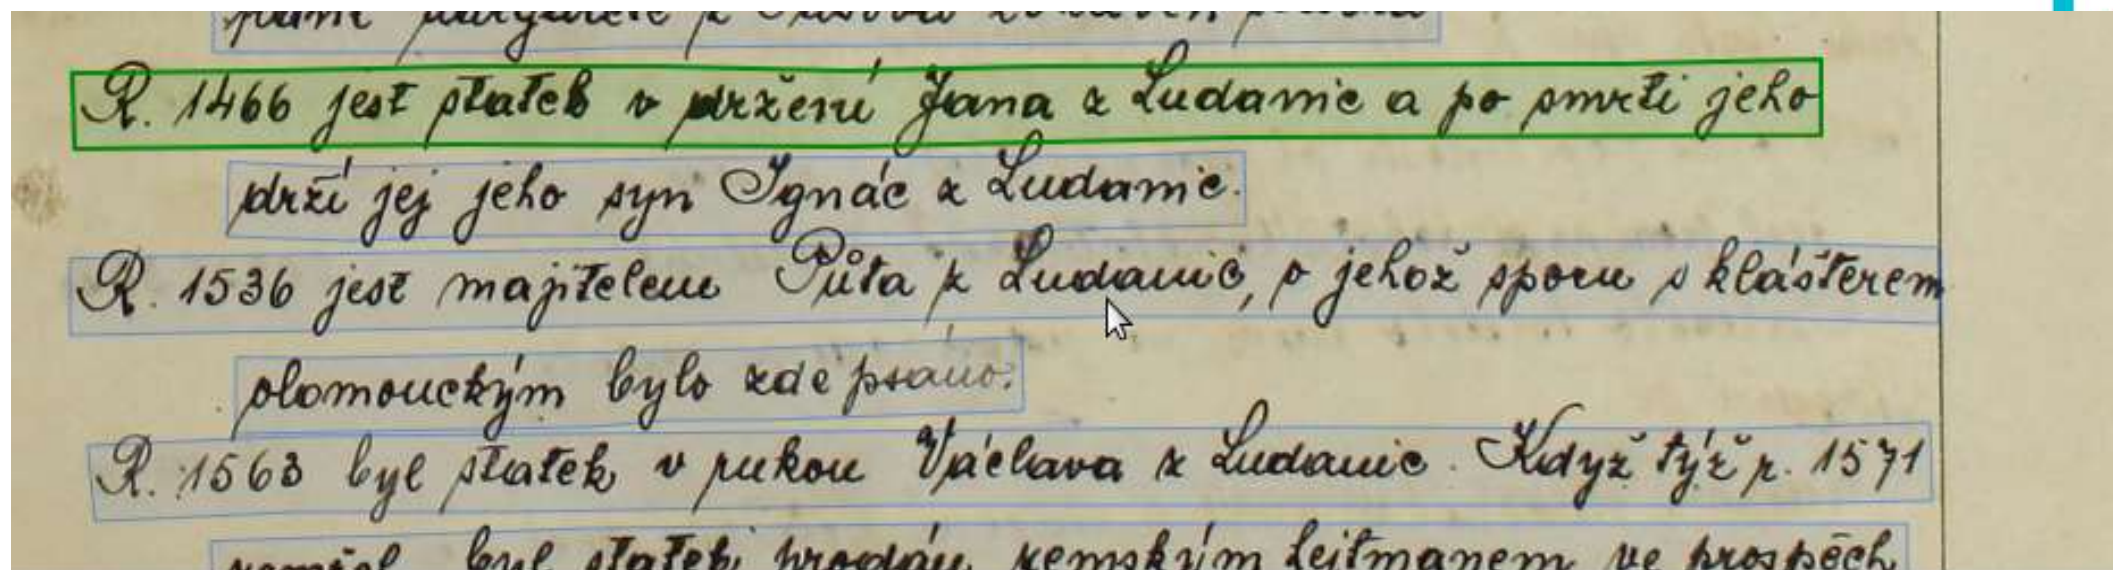 paní Margaretě z
R. 1466 jest statek v držení Jana z Ludanic a po smrti jeho
drží jej jeho syn Ignác z Ludanic.
R. 1536 jest majitelem Půta z Ludanic, o jehož sporu s klášterem
olomouckým bylo zde psáno.
R. 1563 byl statek v rukou Václava z Ludanic. Když týž r. 1571
zemřel byl statek prodán zemským hejtmanem ve prospěch